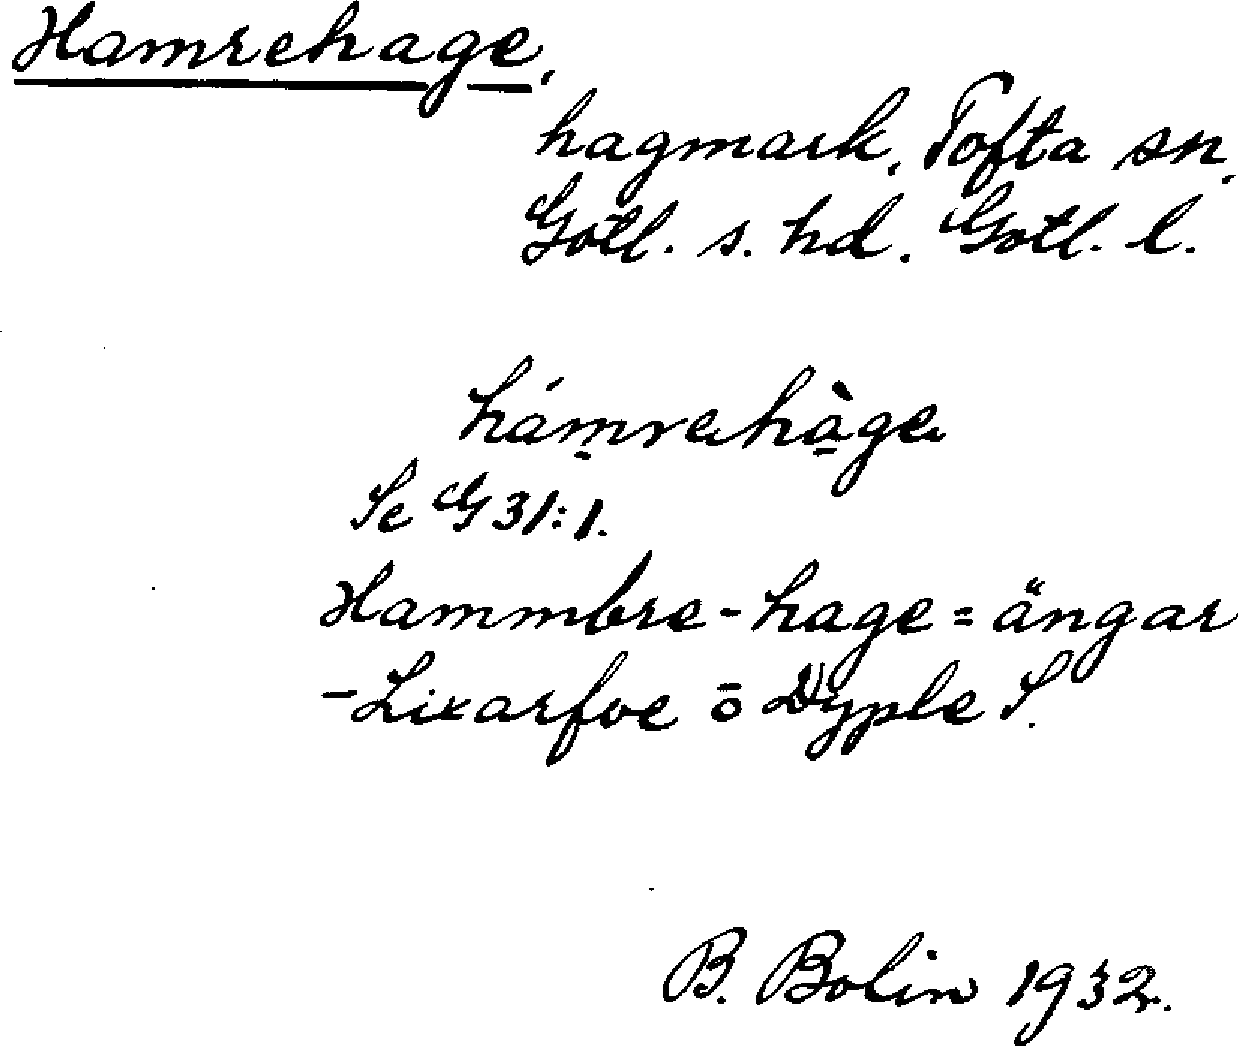 Hamrehage,
hagmark, Tofta sn,
Gotl. s. hd. Gotl. l.
hámrehàge
Se G 31:1.
Hammbre-hage = ängar
- Lixarfve ō Dyple S.
B. Bolin 1932.